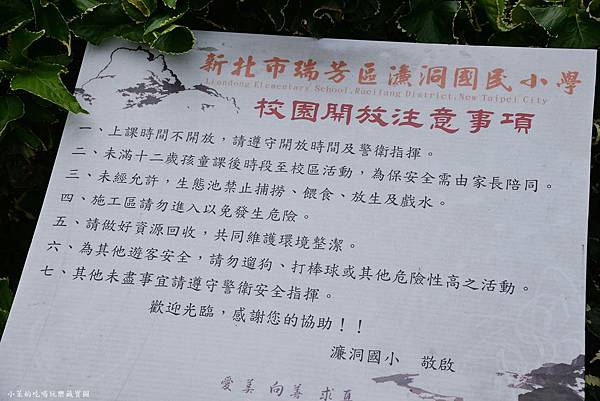 新北市瑞芳區濂洞國民小學
Liandong Elementary School,Rueifang District,New Taipei City
校園開放注意事項
一、上課時間不開放，請遵守開放時間及警衛指揮。
二、未滿十二歲孩童課後時段至校區活動，為保安全需由家長陪同。
三、未經允許，生態池禁止捕撈、餵食、放生及戲水。
四、施工區請勿進入以免發生危險。
五、請做好資源回收，共同維護環境整潔。
六、為其他遊客安全，請勿遛狗、打棒球或其他危險性高之活動。
七、其他未盡事宜請遵守警衛安全指揮。
歡迎光臨，感謝您的協助！！
濂洞國小　敬啟
愛美 向善 求真
小菜的吃喝玩樂藏寶圖